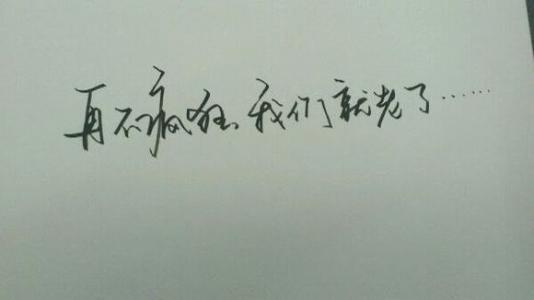 再不疯狂、我们就老了……